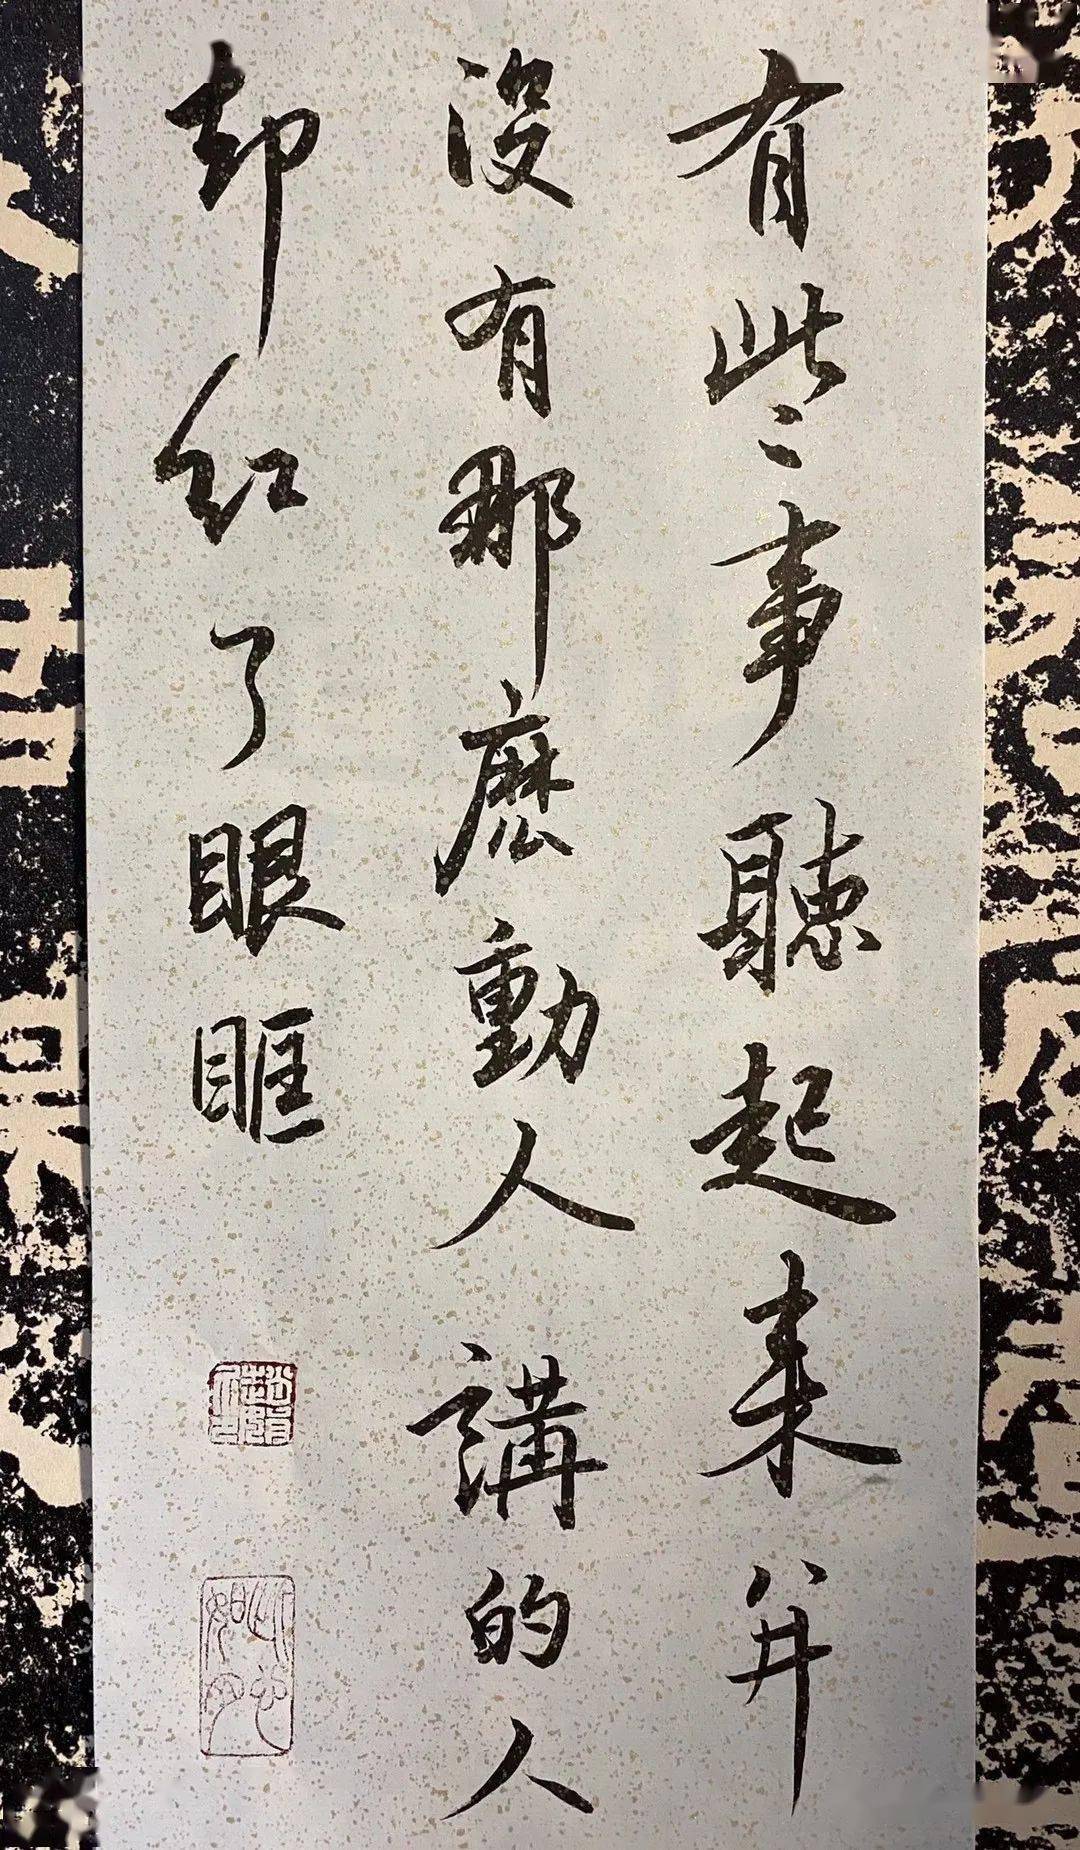 有些事聽起来并
没有那麽動人講的人
却红了眼眶